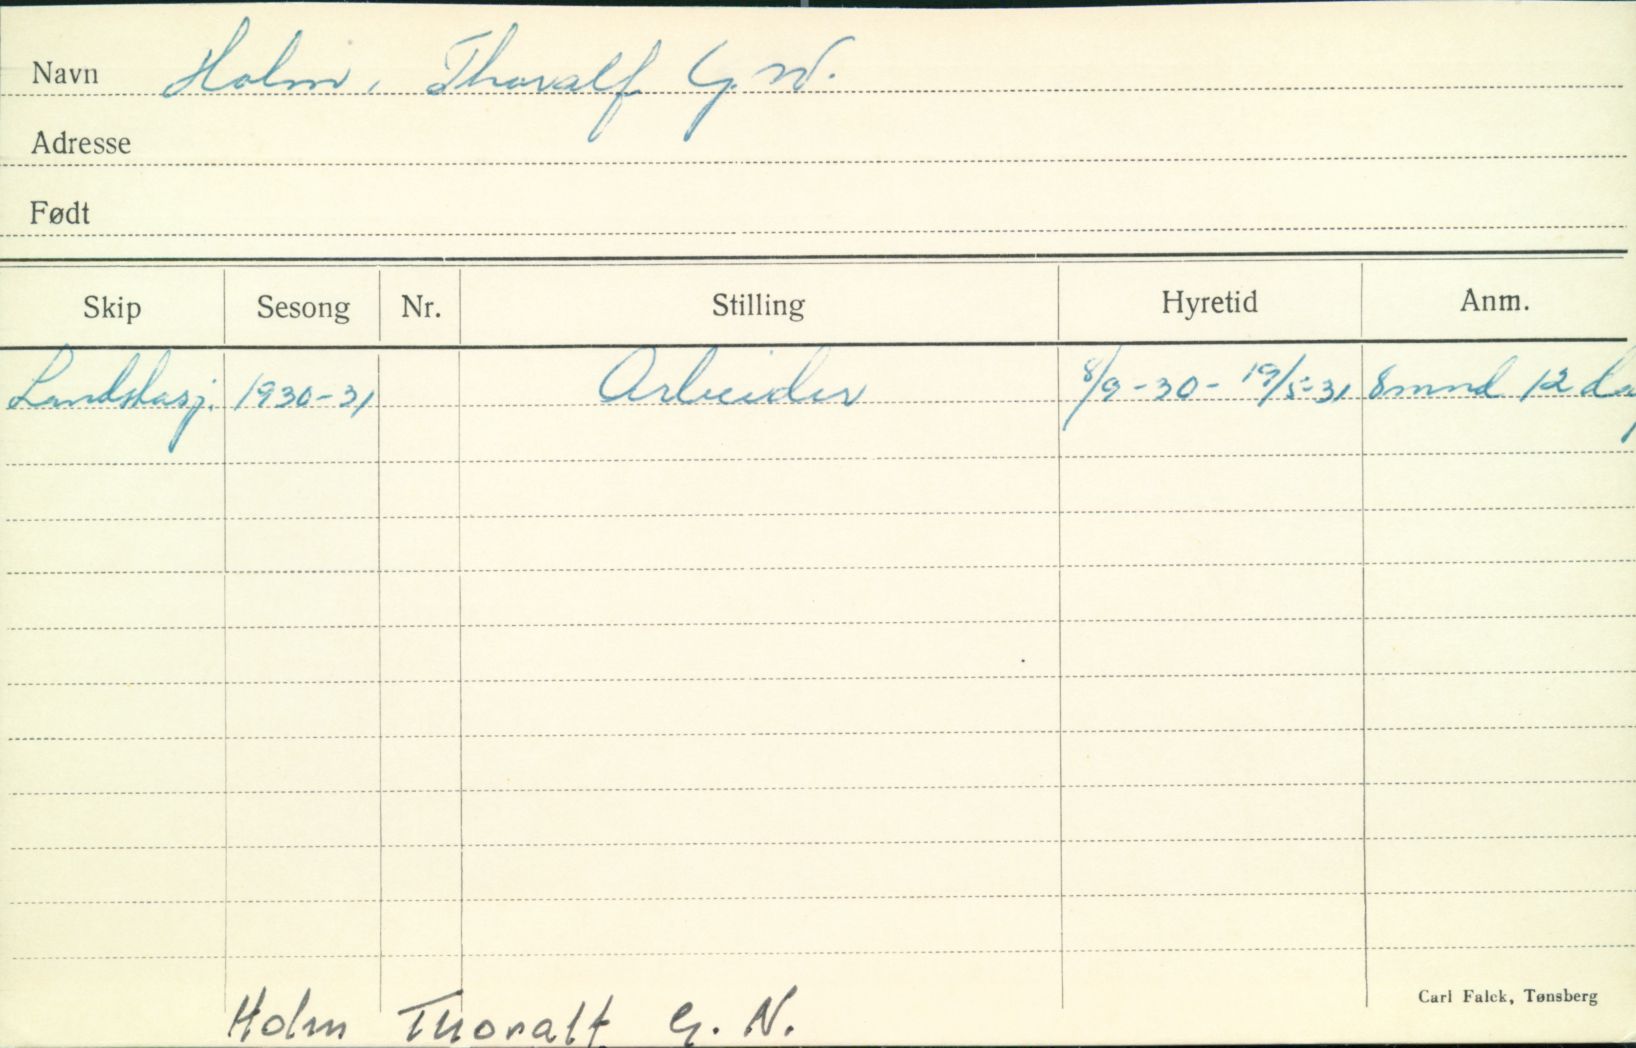 Navn Holm, Thoralf G. N.
Adresse
Født
Skip Sesong Nr. Stilling Hyretid Anm.
1930-31 Arbeider 8/9-30- 19/5-31 8 mnd 12 dag
Carl Falck, Tønsberg
Holm Thoralf G. N.